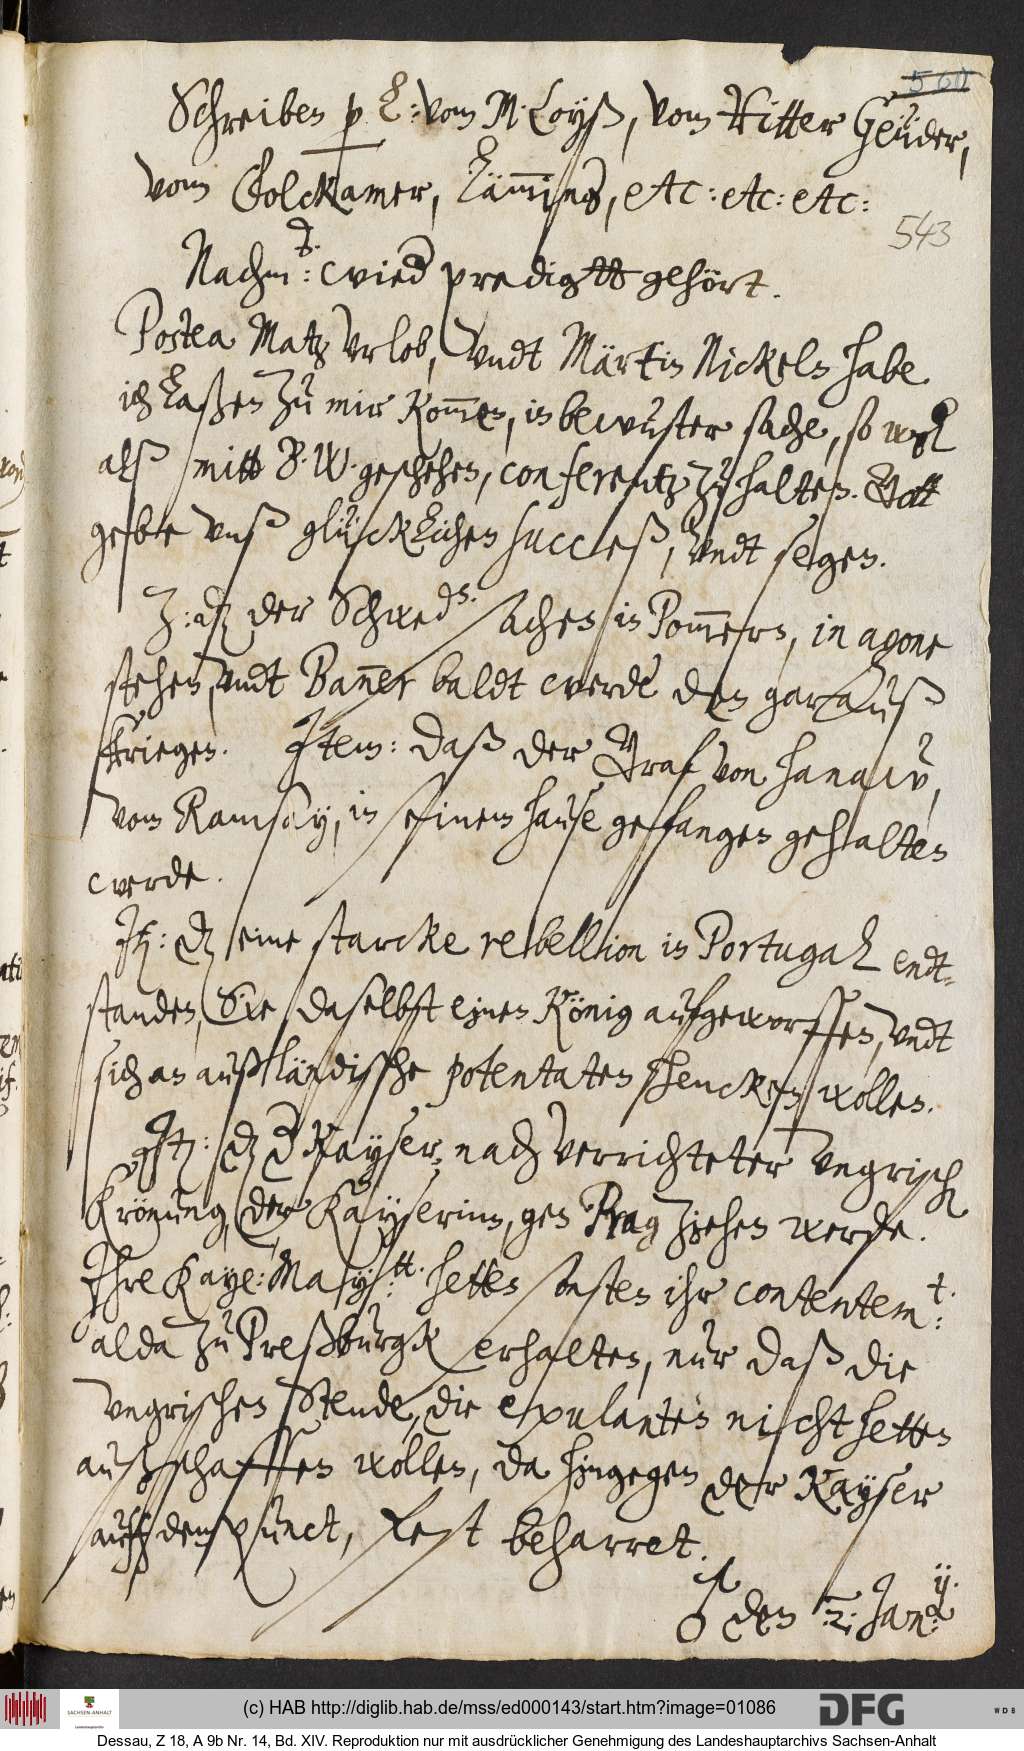 560
Schreiben p. L: vom M. Loyß, vom Ritter Geüder,
vom Bolckamer, Lämings, etc: etc: etc:
543
Nachmd: wied predigtt gehört.
Postea Matz Vrlob, vndt Märtin Nickeln habe
ich Laßen zu mir kommen, in bewuster sache, so wol
alß mitt B. W. geschehen, conferentz zu halten. Gott
gebe vnß glücklichen succeß, vndt segen.
Z: dz der Schweds. sachen in Pom̅ern, in agone
stehen, vndt Ban̅er baldt werde den garauß
kriegen. Item: daß der Graf von hanaw,
vom Ramsay, in seinem hause gefangen gehalten
werde.
Itz: dz eine starcke rebellion in Portugal endt-
standen, Sie daselbst einen König aufgeworffen, vndt
sich an außländische potentaten hencken wollen.
Itz: dz d Kayser, nach verrichteter Vngrisch
Krönung, der Kayserinn, gen Prag ziehen werde.
Ihre Kaye: Mayt: hetten sonsten ihr contentemt:
alda zu Preßburgk erhalten, nur daß die
vngrischen Stende, die expulanten nicht hetten
außschaffen wollen, da hingegen der Kayser
auff dem punct, fest beharret.
♂ den 2. Jan:
(c) HAB http://diglib.hab.de/mss/ed000143/start.htm?image=01086
SACHSEN-ANHALT
DFG
WDB
Dessau, Z 18, A 9b Nr. 14, Bd. XIV. Reproduktion nur mit ausdrücklicher Genehmigung des Landeshauptarchivs Sachsen-Anhalt